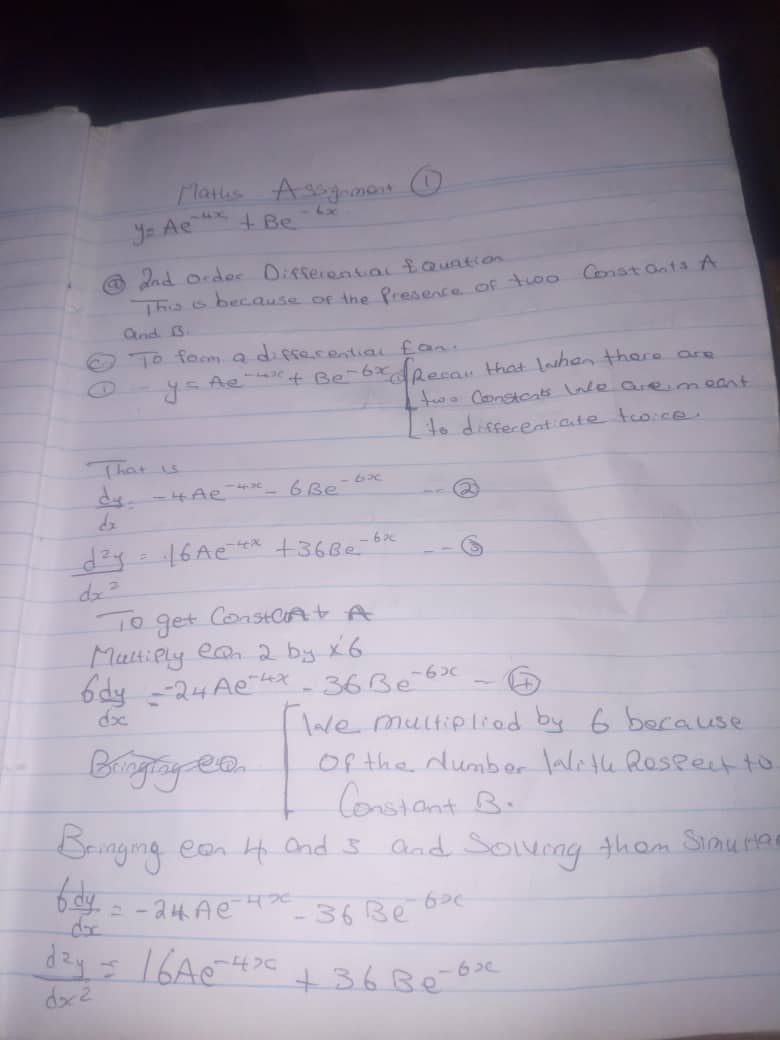 Maths Assignment ①
y = Ae^-4x + Be^-6x
ⓐ 2nd order Differential Equation
This is because of the Presence of two Constants A
and B.
ⓒ To form a differential Eqn.
① - y = Ae^-4x + Be^-6x [Recall that when there are
two Constants We are meant
to differentiate twice.
That is
dy/dx = -4Ae^-4x - 6Be^-6x -- ②
d²y/dx² = 16Ae^-4x + 36Be^-6x -- ③
To get Constant A
Multiply eqn 2 by x6
6dy/dx = -24Ae^-4x - 36Be^-6x - ④
[We multiplied by 6 because
Bringing eqn of the Number With Respect to
Constant B.
Bringing eqn 4 and 3 and Solving them Simulta
6dy/dx = -24Ae^-4x - 36Be^-6x
d²y/dx² = 16Ae^-4x + 36Be^-6x